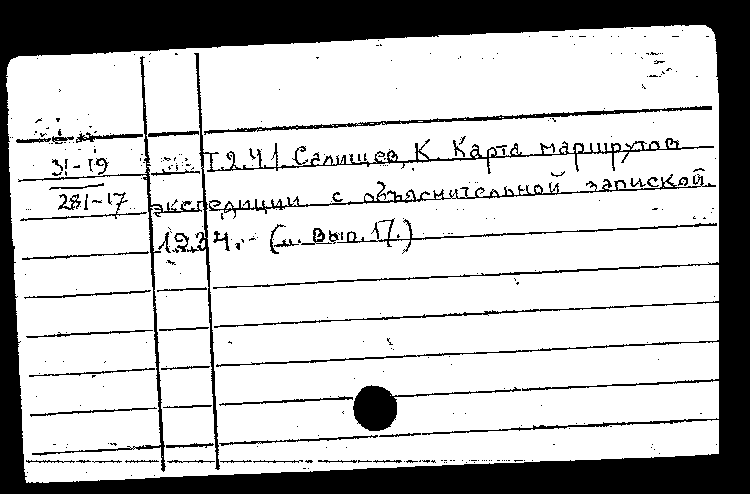 31-19
281-17
Т.2.Ч.1. Салищев, К. Карта маршрутов
экспедиции с объяснительной запиской.
1934.- (и. вып. 17.)